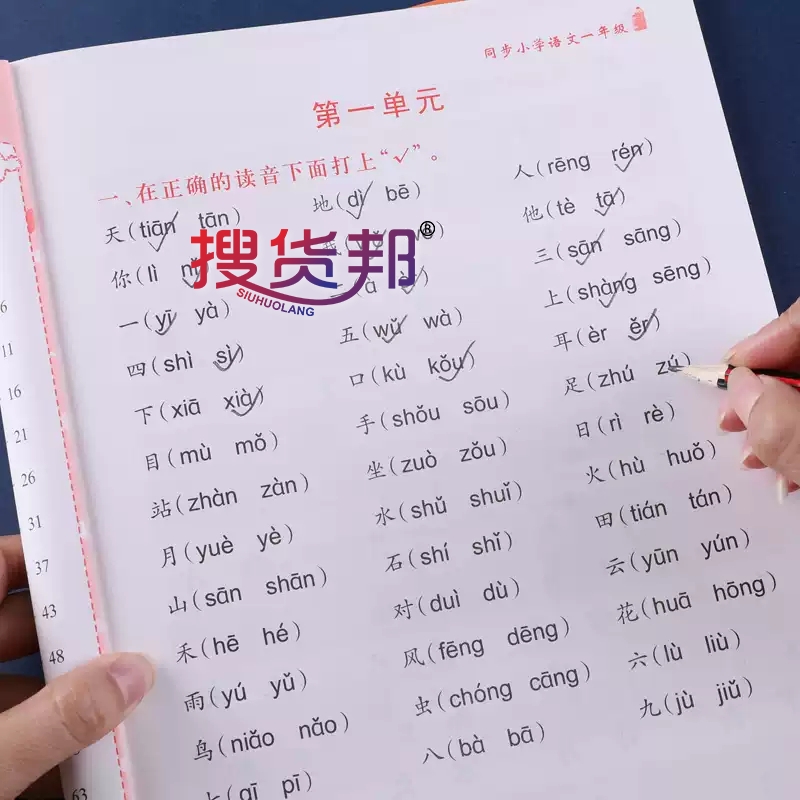 同步小学语文一年级
第一单元
一、在正确的读音下面打上“✓”。
天(tiān tān) 地(dì bē) 人(rēng rén)
你(lì nǐ) 我( ) 他(tè tā)
一(yī yà) 二( ) 三(sān sāng)
四(shì sì) 五(wǔ wà) 上(shàng sēng)
下(xiā xià) 口(kù kǒu) 耳(èr ěr)
目(mù mǒ) 手(shǒu sōu) 足(zhú zú)
站(zhàn zàn) 坐(zuò zǒu) 日(rì rè)
月(yuè yè) 水(shǔ shuǐ) 火(hù huǒ)
山(sān shān) 石(shí shǐ) 田(tián tán)
禾(hē hé) 对(duì dù) 云(yūn yún)
雨(yú yǔ) 风(fēng dēng) 花(huā hōng)
鸟(niǎo nǎo) 虫(chóng cāng) 六(lù liù)
七(qī pī) 八(bà bā) 九(jù jiǔ)
搜货邦®
SIUHUOLANG
6
11
16
21
26
31
37
43
48
63